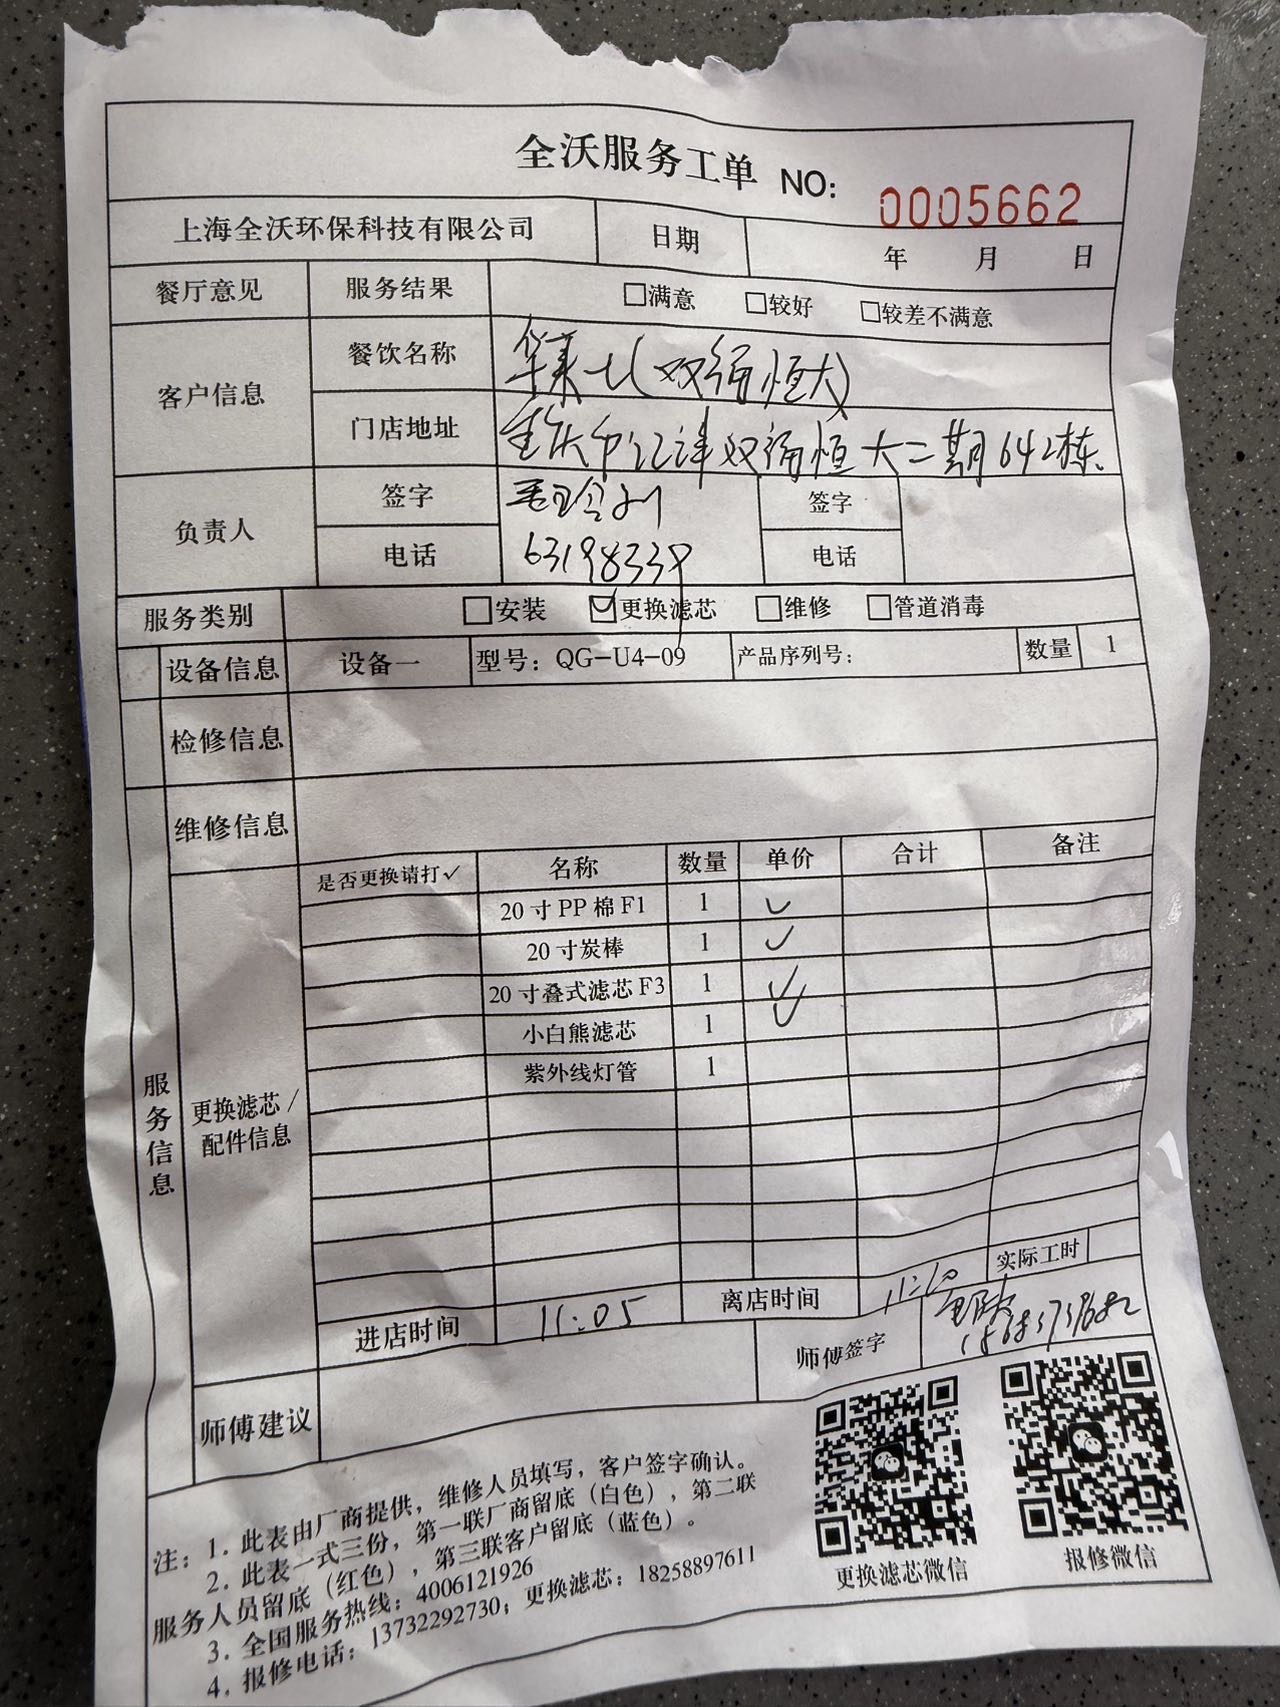 全沃服务工单 NO: 0005662
上海全沃环保科技有限公司 日期 年 月 日
餐厅意见 服务结果 □满意 □较好 □较差不满意
客户信息 餐饮名称 华莱士(双福恒大)
门店地址 重庆市江津双福恒大二期642栋
负责人 签字 签字
电话 63198339 电话
服务类别 □安装 ☑更换滤芯 □维修 □管道消毒
设备信息 设备一 型号：QG-U4-09 产品序列号： 数量 1
检修信息
维修信息
服务信息
更换滤芯/
配件信息
是否更换请打✓ 名称 数量 单价 合计 备注
20寸PP棉F1 1 ✓
20寸炭棒 1 ✓
20寸叠式滤芯F3 1 ✓
小白熊滤芯 1 ✓
紫外线灯管 1
进店时间 11:05 离店时间 实际工时
师傅建议 师傅签字
注：1. 此表由厂商提供，维修人员填写，客户签字确认。
2. 此表一式三份，第一联厂商留底（白色），第二联
服务人员留底（红色），第三联客户留底（蓝色）。
3. 全国服务热线：4006121926
4. 报修电话：13732292730；更换滤芯：18258897611
更换滤芯微信 报修微信